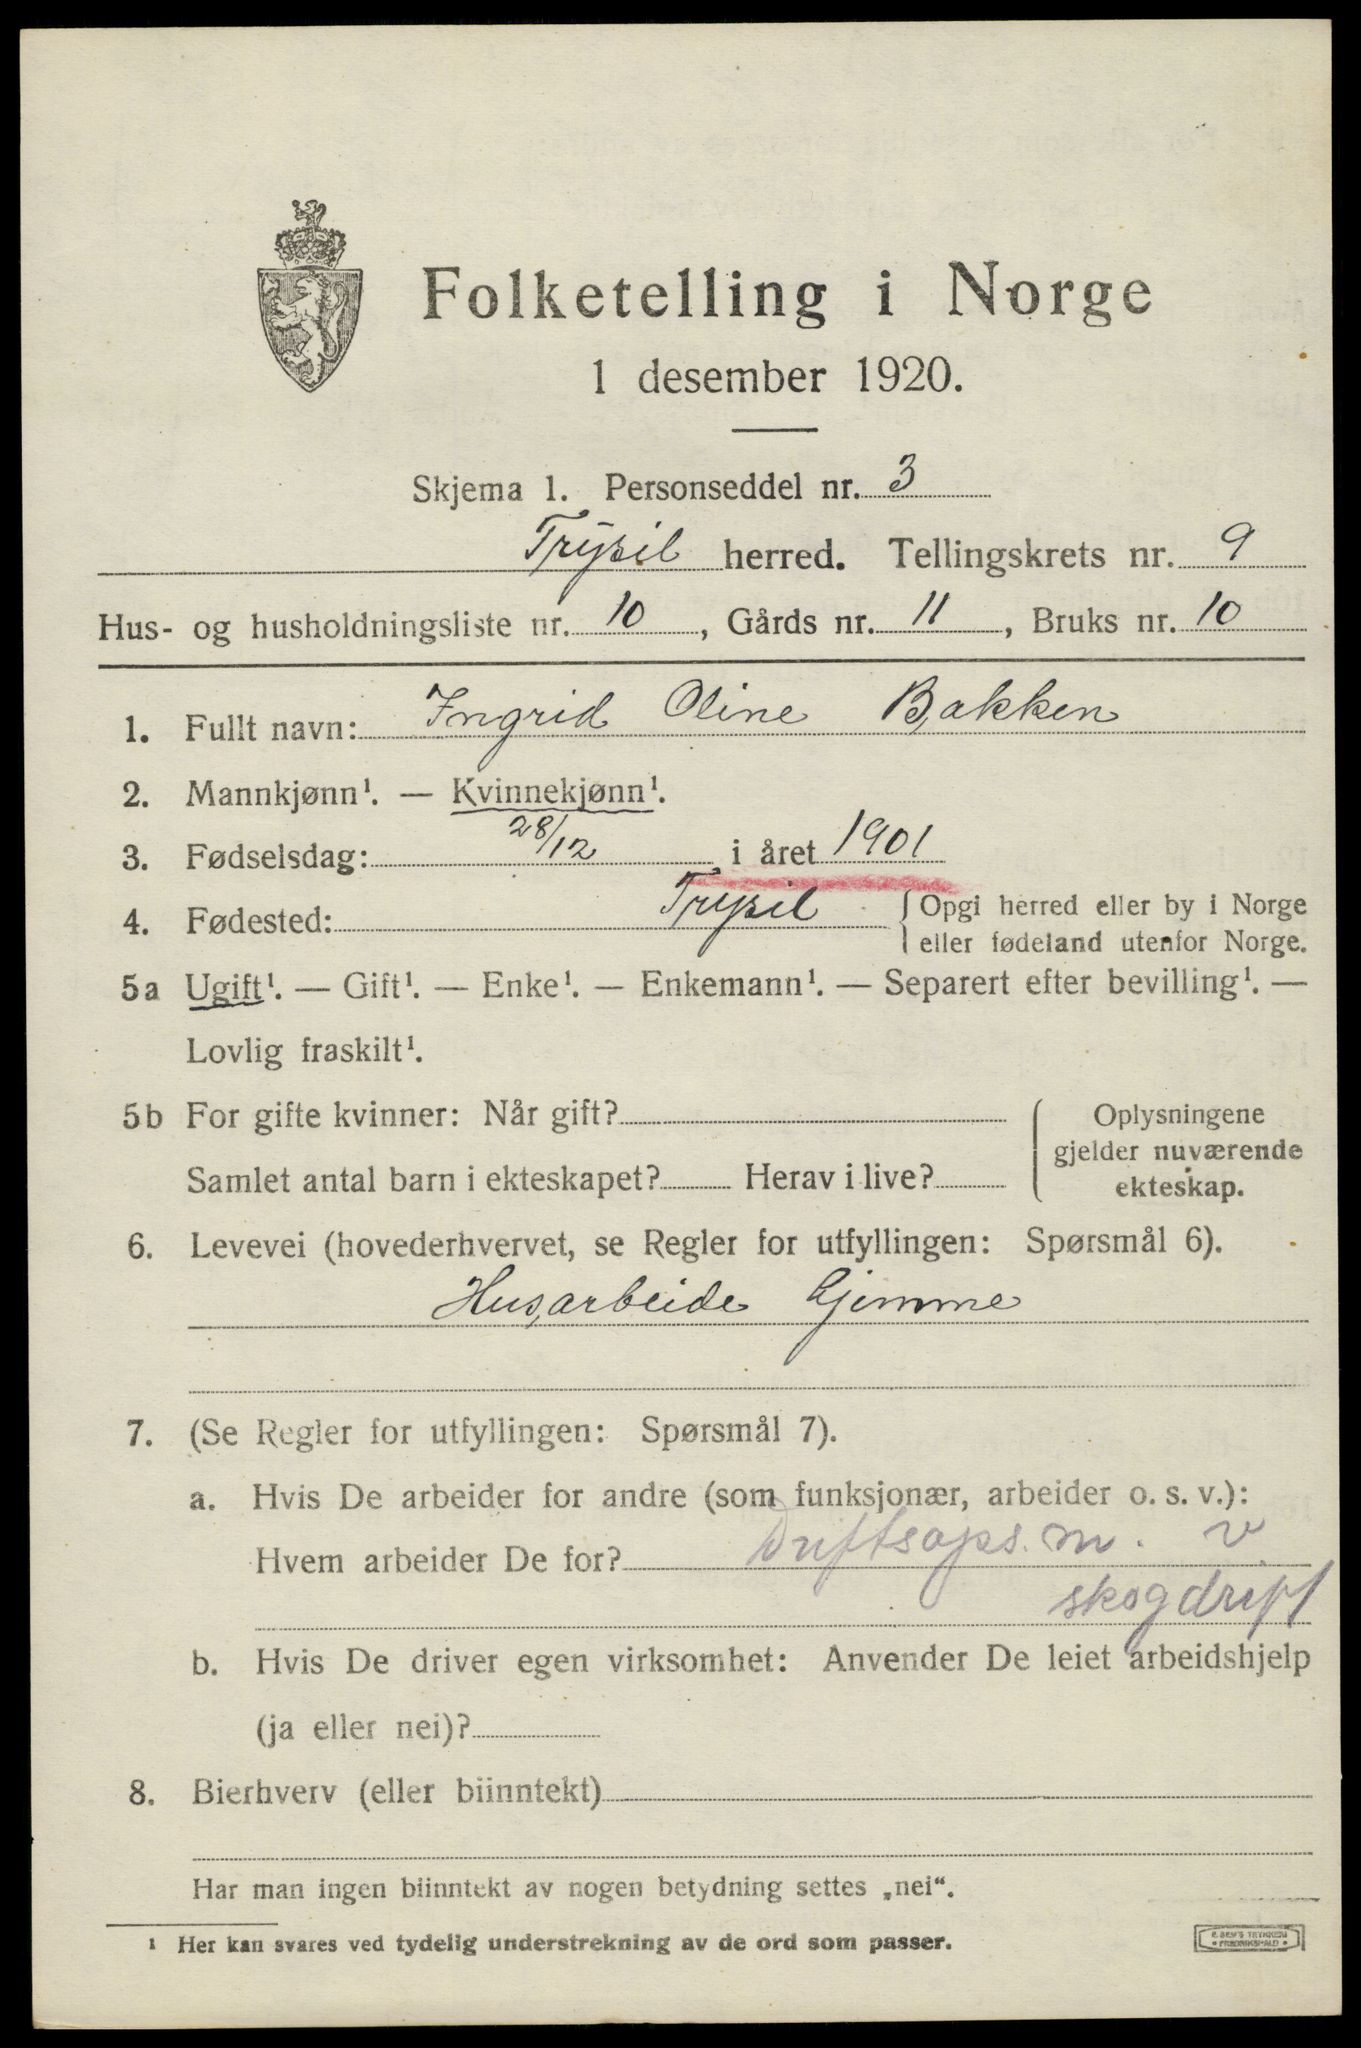 Folketelling i Norge
1 desember 1920.
Skjema 1. Personseddel nr. 3
Trysil herred. Tellingskrets nr. 9
Hus- og husholdningsliste nr. 10, Gårds nr. 11, Bruks nr. 10
1. Fullt navn: Ingrid Oline Bakken
2. Mannkjønn¹. — Kvinnekjønn¹.
3. Fødselsdag: 28/12 i året 1901
4. Fødested: Trysil { Opgi herred eller by i Norge
eller fødeland utenfor Norge.
5a Ugift¹. — Gift¹. — Enke¹. — Enkemann¹. — Separert efter bevilling¹. —
Lovlig fraskilt¹.
5b For gifte kvinner: Når gift?
Samlet antal barn i ekteskapet? Herav i live?
Oplysningene
gjelder nuværende
ekteskap.
6. Levevei (hovederhvervet, se Regler for utfyllingen: Spørsmål 6).
Husarbeide hjemme
7. (Se Regler for utfyllingen: Spørsmål 7).
a. Hvis De arbeider for andre (som funksjonær, arbeider o. s. v.):
Hvem arbeider De for? Driftsops.m. v.
skogdrift
b. Hvis De driver egen virksomhet: Anvender De leiet arbeidshjelp
(ja eller nei)?
8. Bierhverv (eller biinntekt)
Har man ingen biinntekt av nogen betydning settes „nei“.
¹ Her kan svares ved tydelig understrekning av de ord som passer.